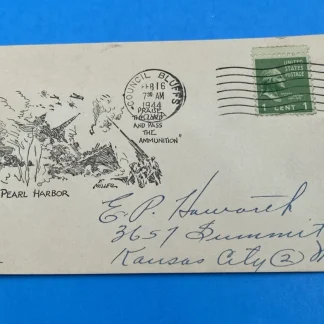 COUNCIL BLUFFS
FEB 16
7 30 AM
1944
"PRAISE
THE LORD
AND PASS
THE
AMMUNITION"
PEARL HARBOR
MILLER
UNITED
STATES
POSTAGE
1 CENT 1
E. P. Haworth
3657 Summit
Kansas City (2)